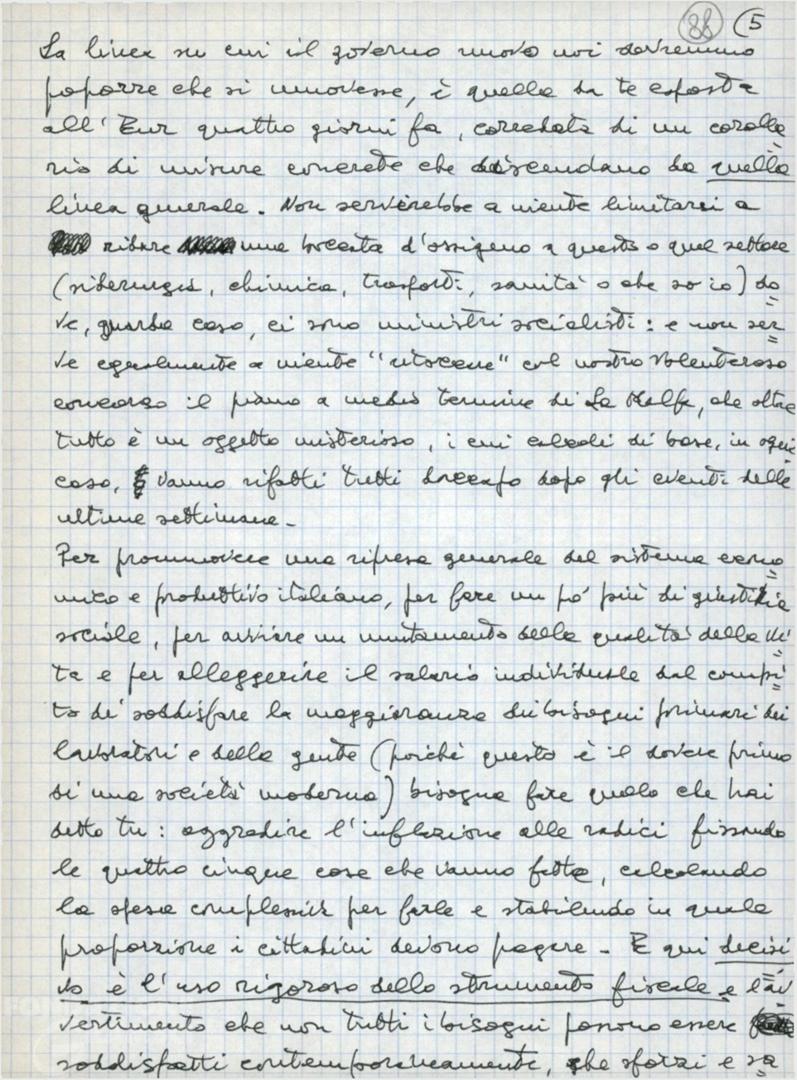 88 (5
La linea su cui il governo nuovo noi dovremmo
poporre che si muovesse, è quella da te esposta
all'Eur quattro giorni fa, corredata di un corolla
rio di misure concrete che discendano da quella
linea generale. Non servirebbe a niente limitarsi a
ridare una boccata d'ossigeno a questo o quel settore
(siderurgia, chimica, trasporti, sanità o che so io) do
ve, guarda caso, ci sono ministri socialisti: e non ser
ve egualmente a niente "ritoccare" col nostro volenteroso
concorso il piano a medio termine di La Malfa, che oltre
tutto è un oggetto misterioso, i cui calcoli di base, in ogni
caso, vanno rifatti tutti daccapo dopo gli eventi delle
ultime settimane.
Per promuovere una ripresa generale del sistema econo
mico e produttivo italiano, per fare un po' più di giustizia
sociale, per avviare un mutamento della qualità della vi
ta e per alleggerire il salario individuale dal compi
to di soddisfare la maggioranza dei bisogni primari dei
lavoratori e della gente (poiché questo è il dovere primo
di una società moderna) bisogna fare quello che hai
detto tu: aggredire l'inflazione alle radici fissando
le quattro cinque cose che vanno fatte, calcolando
la spesa complessiva per farle e stabilendo in quale
proporzione i cittadini devono pagare. E qui decisi
vo è l'uso rigoroso dello strumento fiscale e l'av
vertimento che non tutti i bisogni possono essere
soddisfatti contemporaneamente, che sforzi e sa